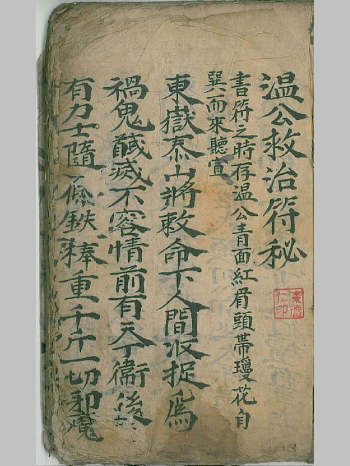 温公救治符秘
書符之時存温公青面紅骨頭帶瓊花自
巽而來聽宣
東嶽泰山將敕命下人間收捉為
禍鬼馘滅不容情前有天丁衛後
有力士隨一條鉄棒重千斤一切邪魔